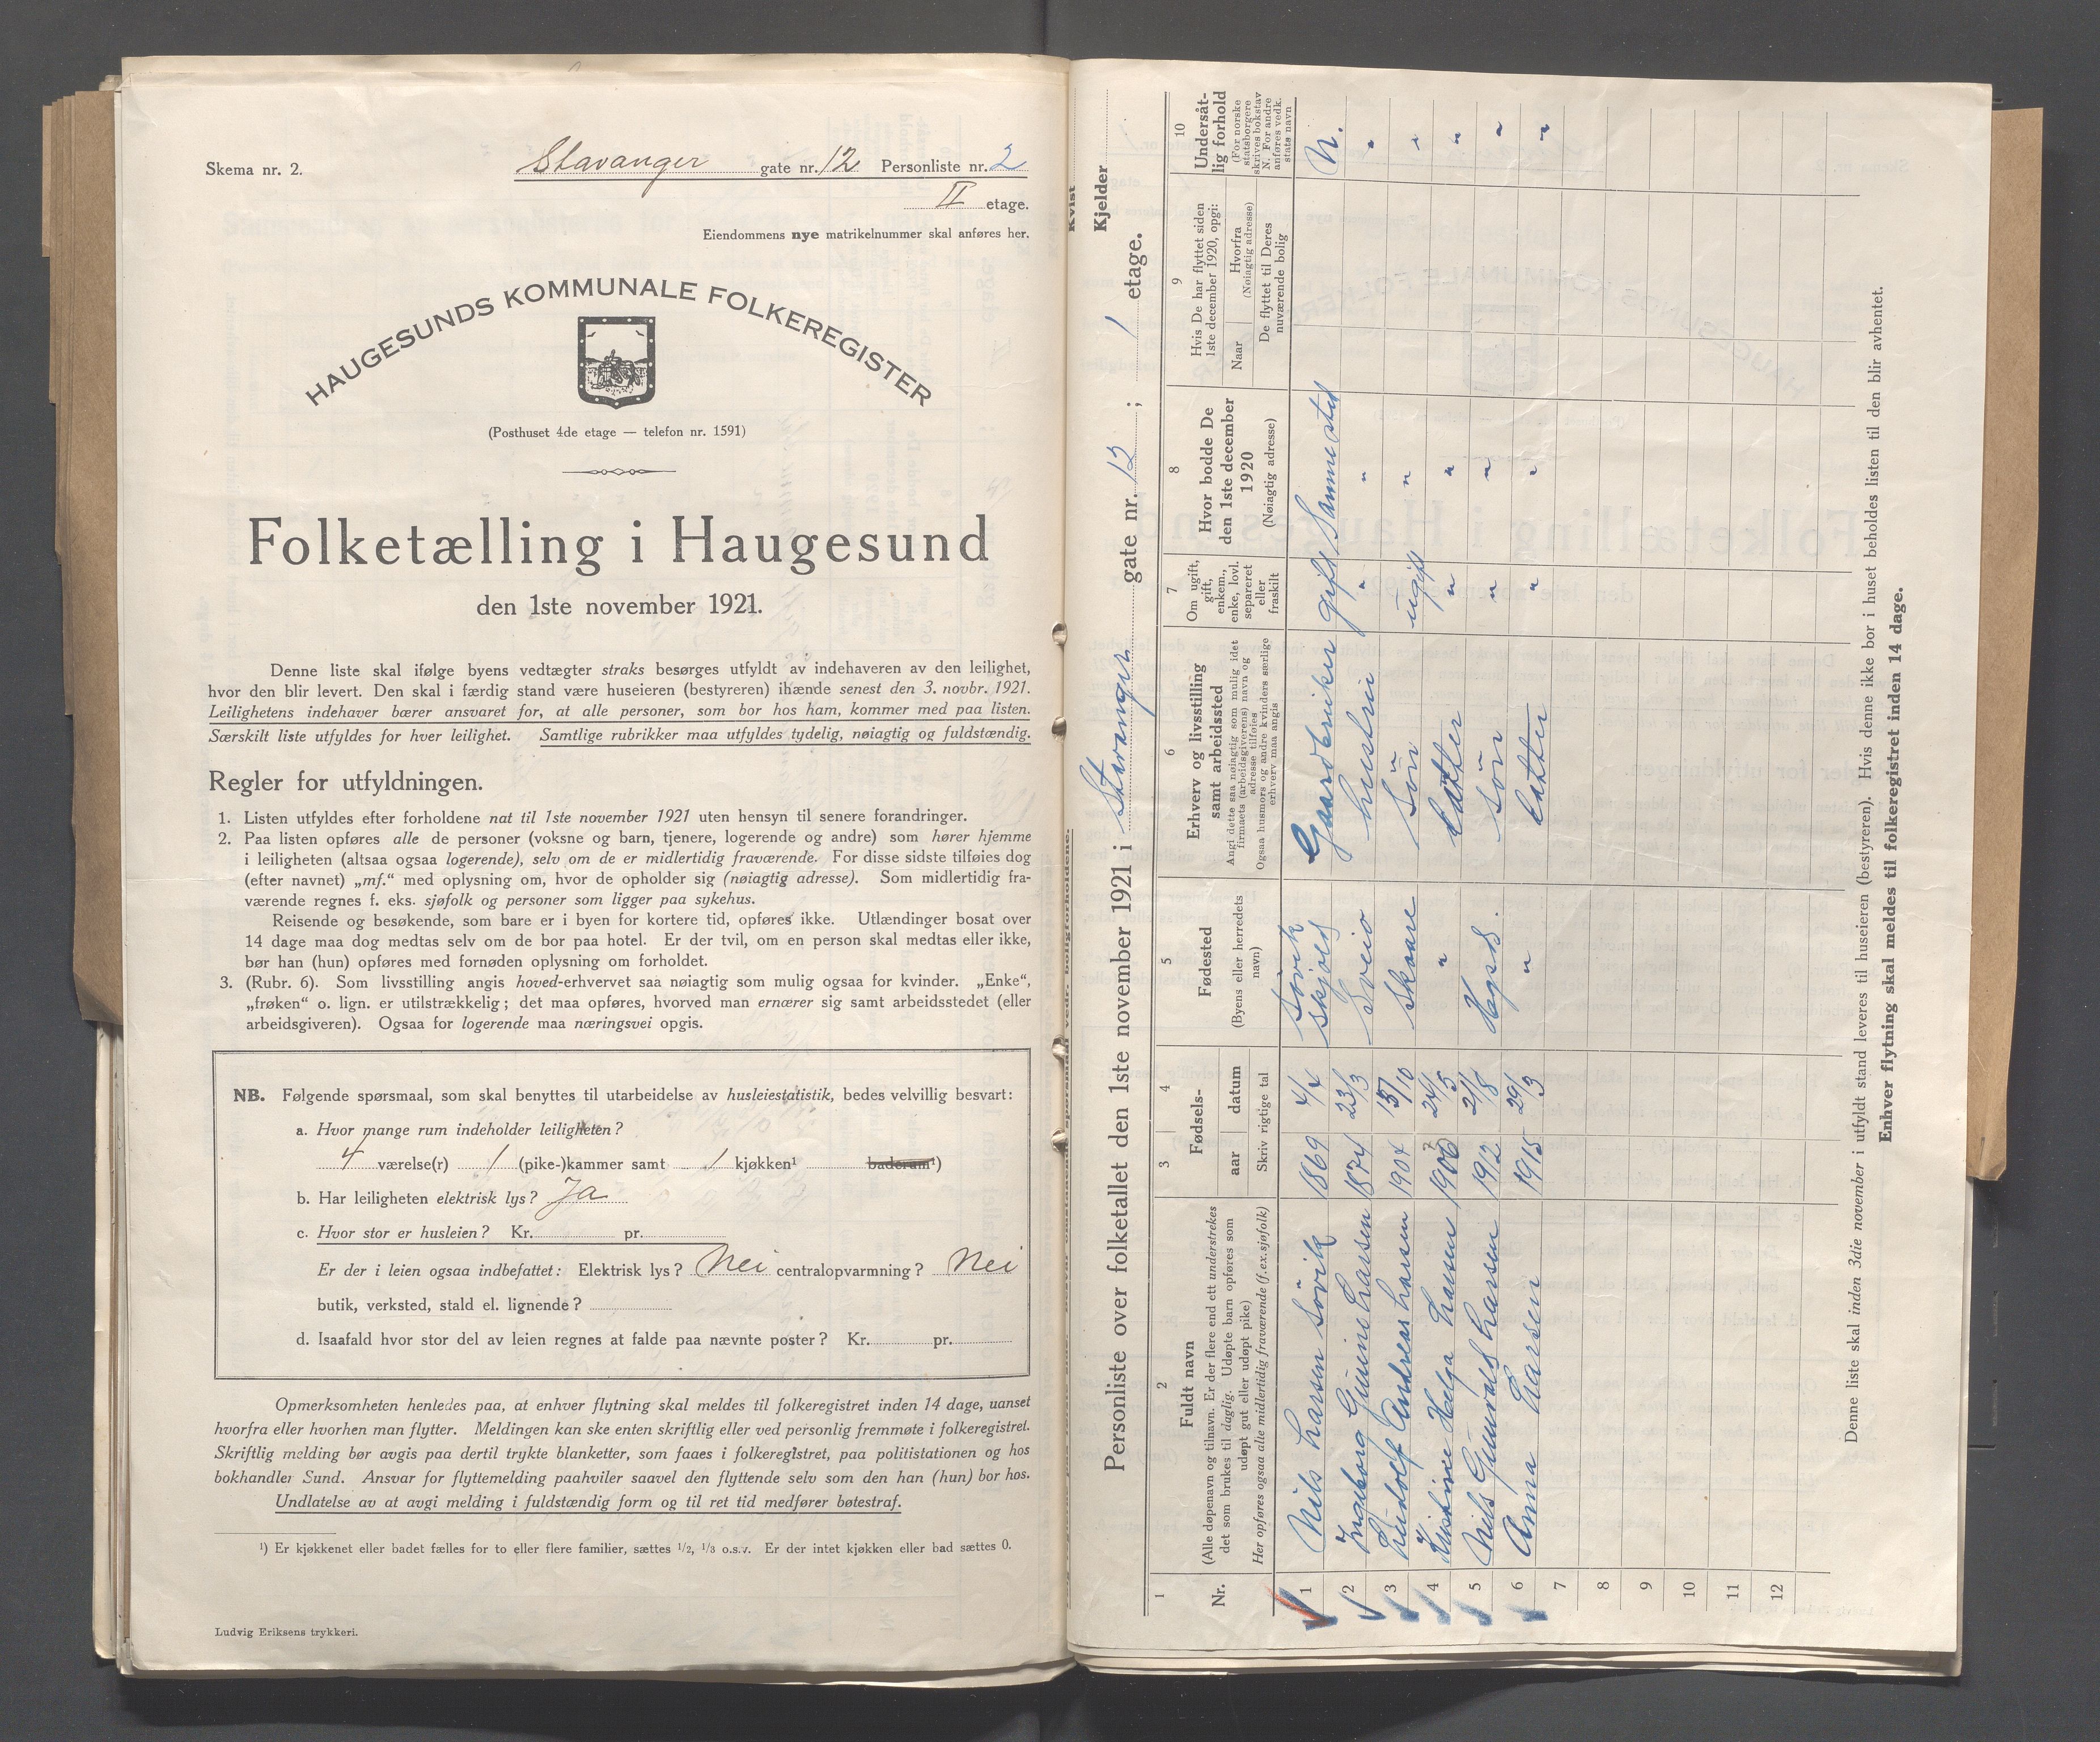 Skema nr. 2.
Stavanger gate nr. 12 Personliste nr. 2
II etage.
Eiendommens nye matrikelnummer skal anføres her.
HAUGESUNDS KOMMUNALE FOLKEREGISTER
(Posthuset 4de etage — telefon nr. 1591)
Folketælling i Haugesund
den 1ste november 1921.
Denne liste skal ifølge byens vedtægter straks besørges utfyldt av indehaveren av den leilighet,
hvor den blir levert. Den skal i færdig stand være huseieren (bestyreren) ihænde senest den 3. novbr. 1921.
Leilighetens indehaver bærer ansvaret for, at alle personer, som bor hos ham, kommer med paa listen.
Særskilt liste utfyldes for hver leilighet. Samtlige rubrikker maa utfyldes tydelig, nøiagtig og fuldstændig.
Regler for utfyldningen.
1. Listen utfyldes efter forholdene nat til 1ste november 1921 uten hensyn til senere forandringer.
2. Paa listen opføres alle de personer (voksne og barn, tjenere, logerende og andre) som hører hjemme
i leiligheten (altsaa ogsaa logerende), selv om de er midlertidig fraværende. For disse sidste tilføies dog
(efter navnet) „mf.“ med oplysning om, hvor de opholder sig (nøiagtig adresse). Som midlertidig fra-
værende regnes f. eks. sjøfolk og personer som ligger paa sykehus.
Reisende og besøkende, som bare er i byen for kortere tid, opføres ikke. Utlændinger bosat over
14 dage maa dog medtas selv om de bor paa hotel. Er der tvil, om en person skal medtas eller ikke,
bør han (hun) opføres med fornøden oplysning om forholdet.
3. (Rubr. 6). Som livsstilling angis hoved-erhvervet saa nøiagtig som mulig ogsaa for kvinder. „Enke“,
„frøken“ o. lign. er utilstrækkelig; det maa opføres, hvorved man ernærer sig samt arbeidsstedet (eller
arbeidsgiveren). Ogsaa for logerende maa næringsvei opgis.
NB. Følgende spørsmaal, som skal benyttes til utarbeidelse av husleiestatistik, bedes velvillig besvart:
a. Hvor mange rum indeholder leiligheten?
4 værelse(r) 1 (pike-)kammer samt 1 kjøkken¹ baderum¹)
b. Har leiligheten elektrisk lys? Ja
c. Hvor stor er husleien? Kr. pr.
Er der i leien ogsaa indbefattet: Elektrisk lys? Nei centralopvarmning? Nei
butik, verksted, stald el. lignende?
d. Isaafald hvor stor del av leien regnes at falde paa nævnte poster? Kr. pr.
Opmerksomheten henledes paa, at enhver flytning skal meldes til folkeregistret inden 14 dage, uanset
hvorfra eller hvorhen man flytter. Meldingen kan ske enten skriftlig eller ved personlig fremmøte i folkeregistret.
Skriftlig melding bør avgis paa dertil trykte blanketter, som faaes i folkeregistret, paa politistationen og hos
bokhandler Sund. Ansvar for flyttemelding paahviler saavel den flyttende selv som den han (hun) bor hos.
Undlatelse av at avgi melding i fuldstændig form og til ret tid medfører bøtestraf.
¹) Er kjøkkenet eller badet fælles for to eller flere familier, sættes 1/2, 1/3 o.s.v. Er der intet kjøkken eller bad sættes 0.
Ludvig Eriksens trykkeri.
Kvist
Kjelder
Personliste over folketallet den 1ste november 1921 i Stavanger gate nr. 12 ; 1 etage.
1 2 3 4 5 6 7 8 9 10
Nr.
Fuldt navn
(Alle døpenavn og tilnavn. Er der flere end ett understrekes
det som brukes til daglig. Udøpte barn opføres som
udøpt gut eller udøpt pike)
Her opføres ogsaa alle midlertidig fraværende (f.ex.sjøfolk)
Fødsels-
aar datum
Skriv rigtige tal
Fødested
(Byens eller herredets
navn)
Erhverv og livsstilling
samt arbeidssted
Angi dette saa nøiagtig som mulig idet
firmaets (arbeidsgiverens) navn og
adresse tilføies
Ogsaa husmors og andre kvinders særlige
erhverv maa angis
Om ugift,
gift,
enkem.,
enke, lovl.
separeret
eller
fraskilt
Hvor bodde De
den 1ste december
1920
(Nøiagtig adresse)
Hvis De har flyttet siden
1ste december 1920, opgi:
Naar Hvorfra
(Nøiagtig adresse)
De flyttet til Deres
nuværende bolig
Undersåt-
lig forhold
(For norske
statsborgere
skrives bokstav
N. For andre
anføres vedk.
stats navn
1 Nils Larsen Sövik 1869 4/4 Sövik Skjold Gaardbruker gift Samme sted N.
2 Ingeborg Gunine Larsen 1874 23/3 Sveio hustru " " "
3 Rudolf Andreas Larsen 1904 13/10 Skaare Sön ugift " "
4 Kristine Helga Larsen 1906 7 24/5 " Datter " " "
5 Nils Gunvald Larsen 1912 21/8 Hgsd. sön " " "
6 Anna Larsen 1915 29/3 " datter " " "
7
8
9
10
11
12
Denne liste skal inden 3die november i utfyldt stand leveres til huseieren (bestyreren). Hvis denne ikke bor i huset beholdes listen til den blir avhentet.
Enhver flytning skal meldes til folkeregistret inden 14 dage.